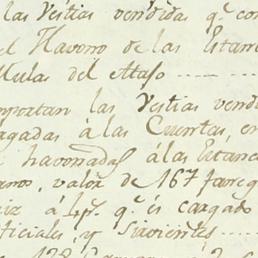 las Vestias vendidas q.e con
el Havono de las Estan
Mulas del Atajo
mportan las Vestias vend
agadas á las Cuentas, en
havonadas á las Estanc
valor de 167 faneg
á 4 p.s q.e és cargado
ficiales, y Sirvientes